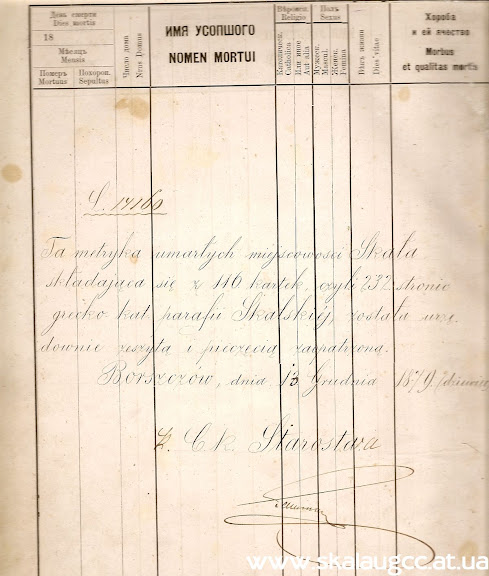 День смерти
Dies mortis
18
Мѣсяцъ
Mensis
Померъ
Mortuus
Похорон.
Sepultus
Число дома
Nrus Domus
ИМЯ УСОПШОГО
NOMEN MORTUI
Вѣроисп.
Religio
Католическ.
Catholica
Или ине
Aut alia
Полъ
Sexus
Мужеск.
Mascul.
Женск.
Femina
Вѣкъ жизни
Dies vitae
Хороба
и еи качество
Morbus
et qualitas mortis
L. 14160
Ta metryka umarłych miejscowości Skała
składająca się z 116 kartek, czyli 232 stronic
grecko kat. parafii Skalskiéj, została urzę
downie zeszyta i pieczęcią zaopatrzona.
Borszczów, dnia 13 Grudnia 1879.
Z. C. k. Starostwa
www.skalaugcc.at.ua